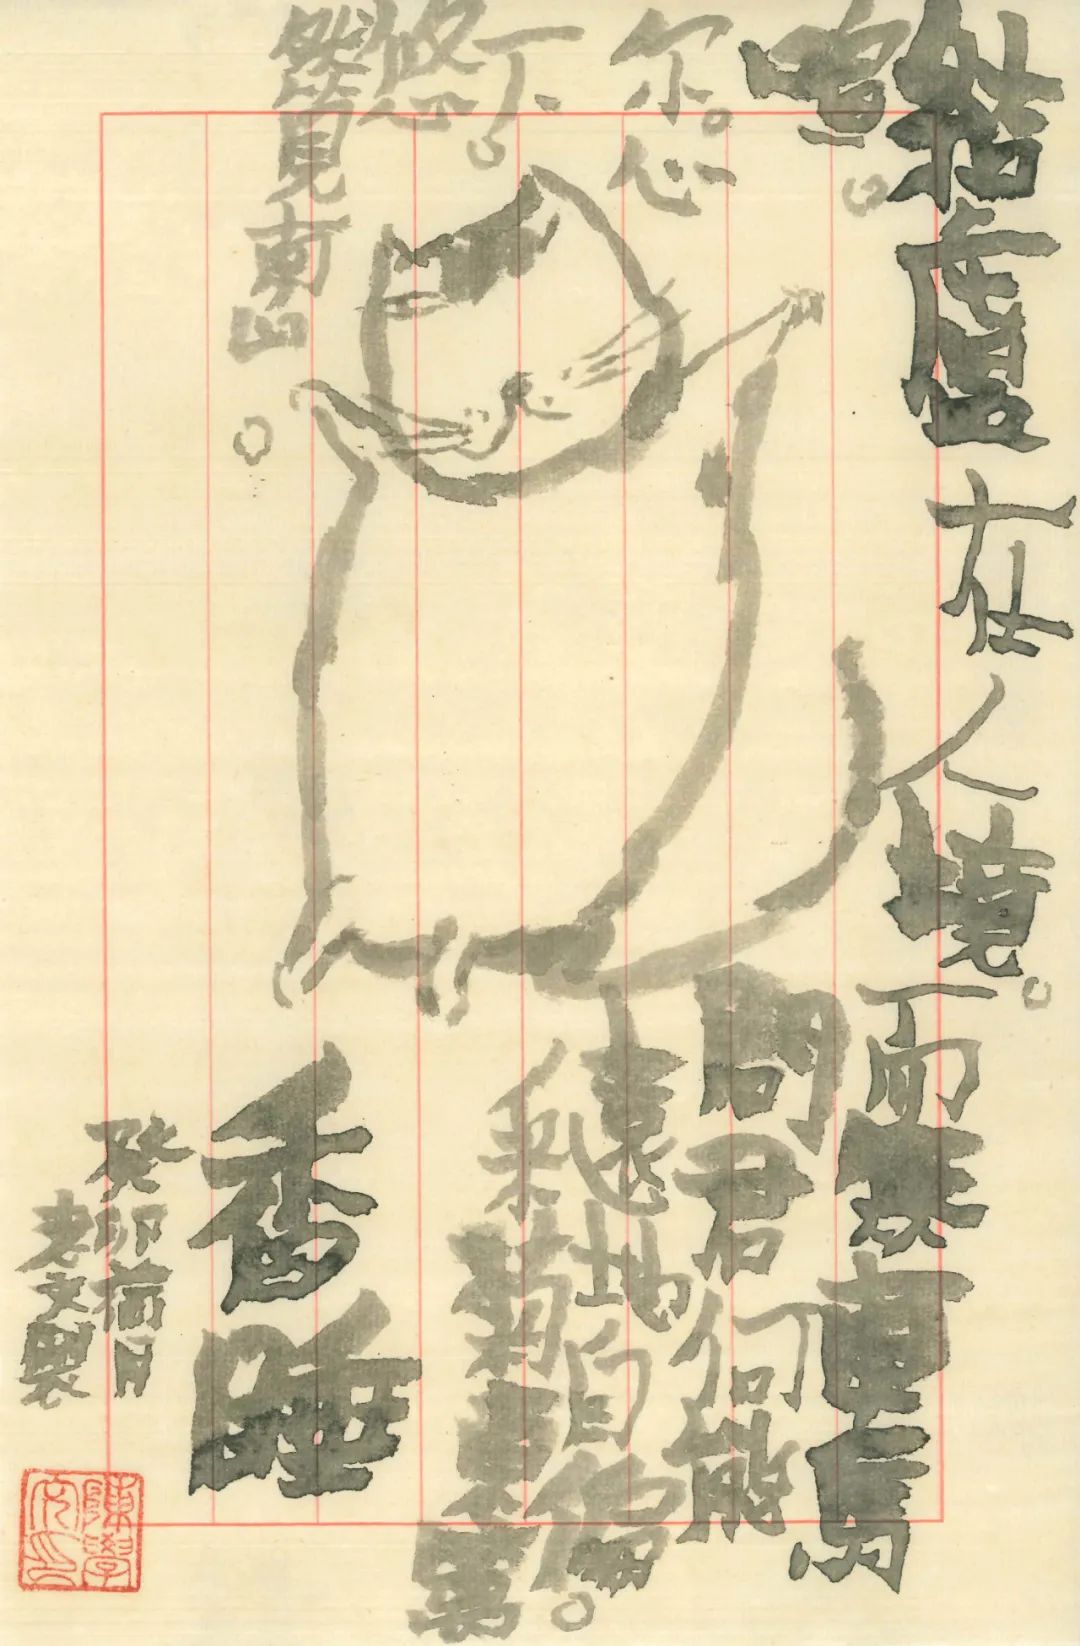 結廬在人境。
而無車馬
喧。
問君何能
尔。心
遠地自偏。
采菊東籬
下。
悠
然見南山。
香睡
癸卯
老文製
陳學
文印